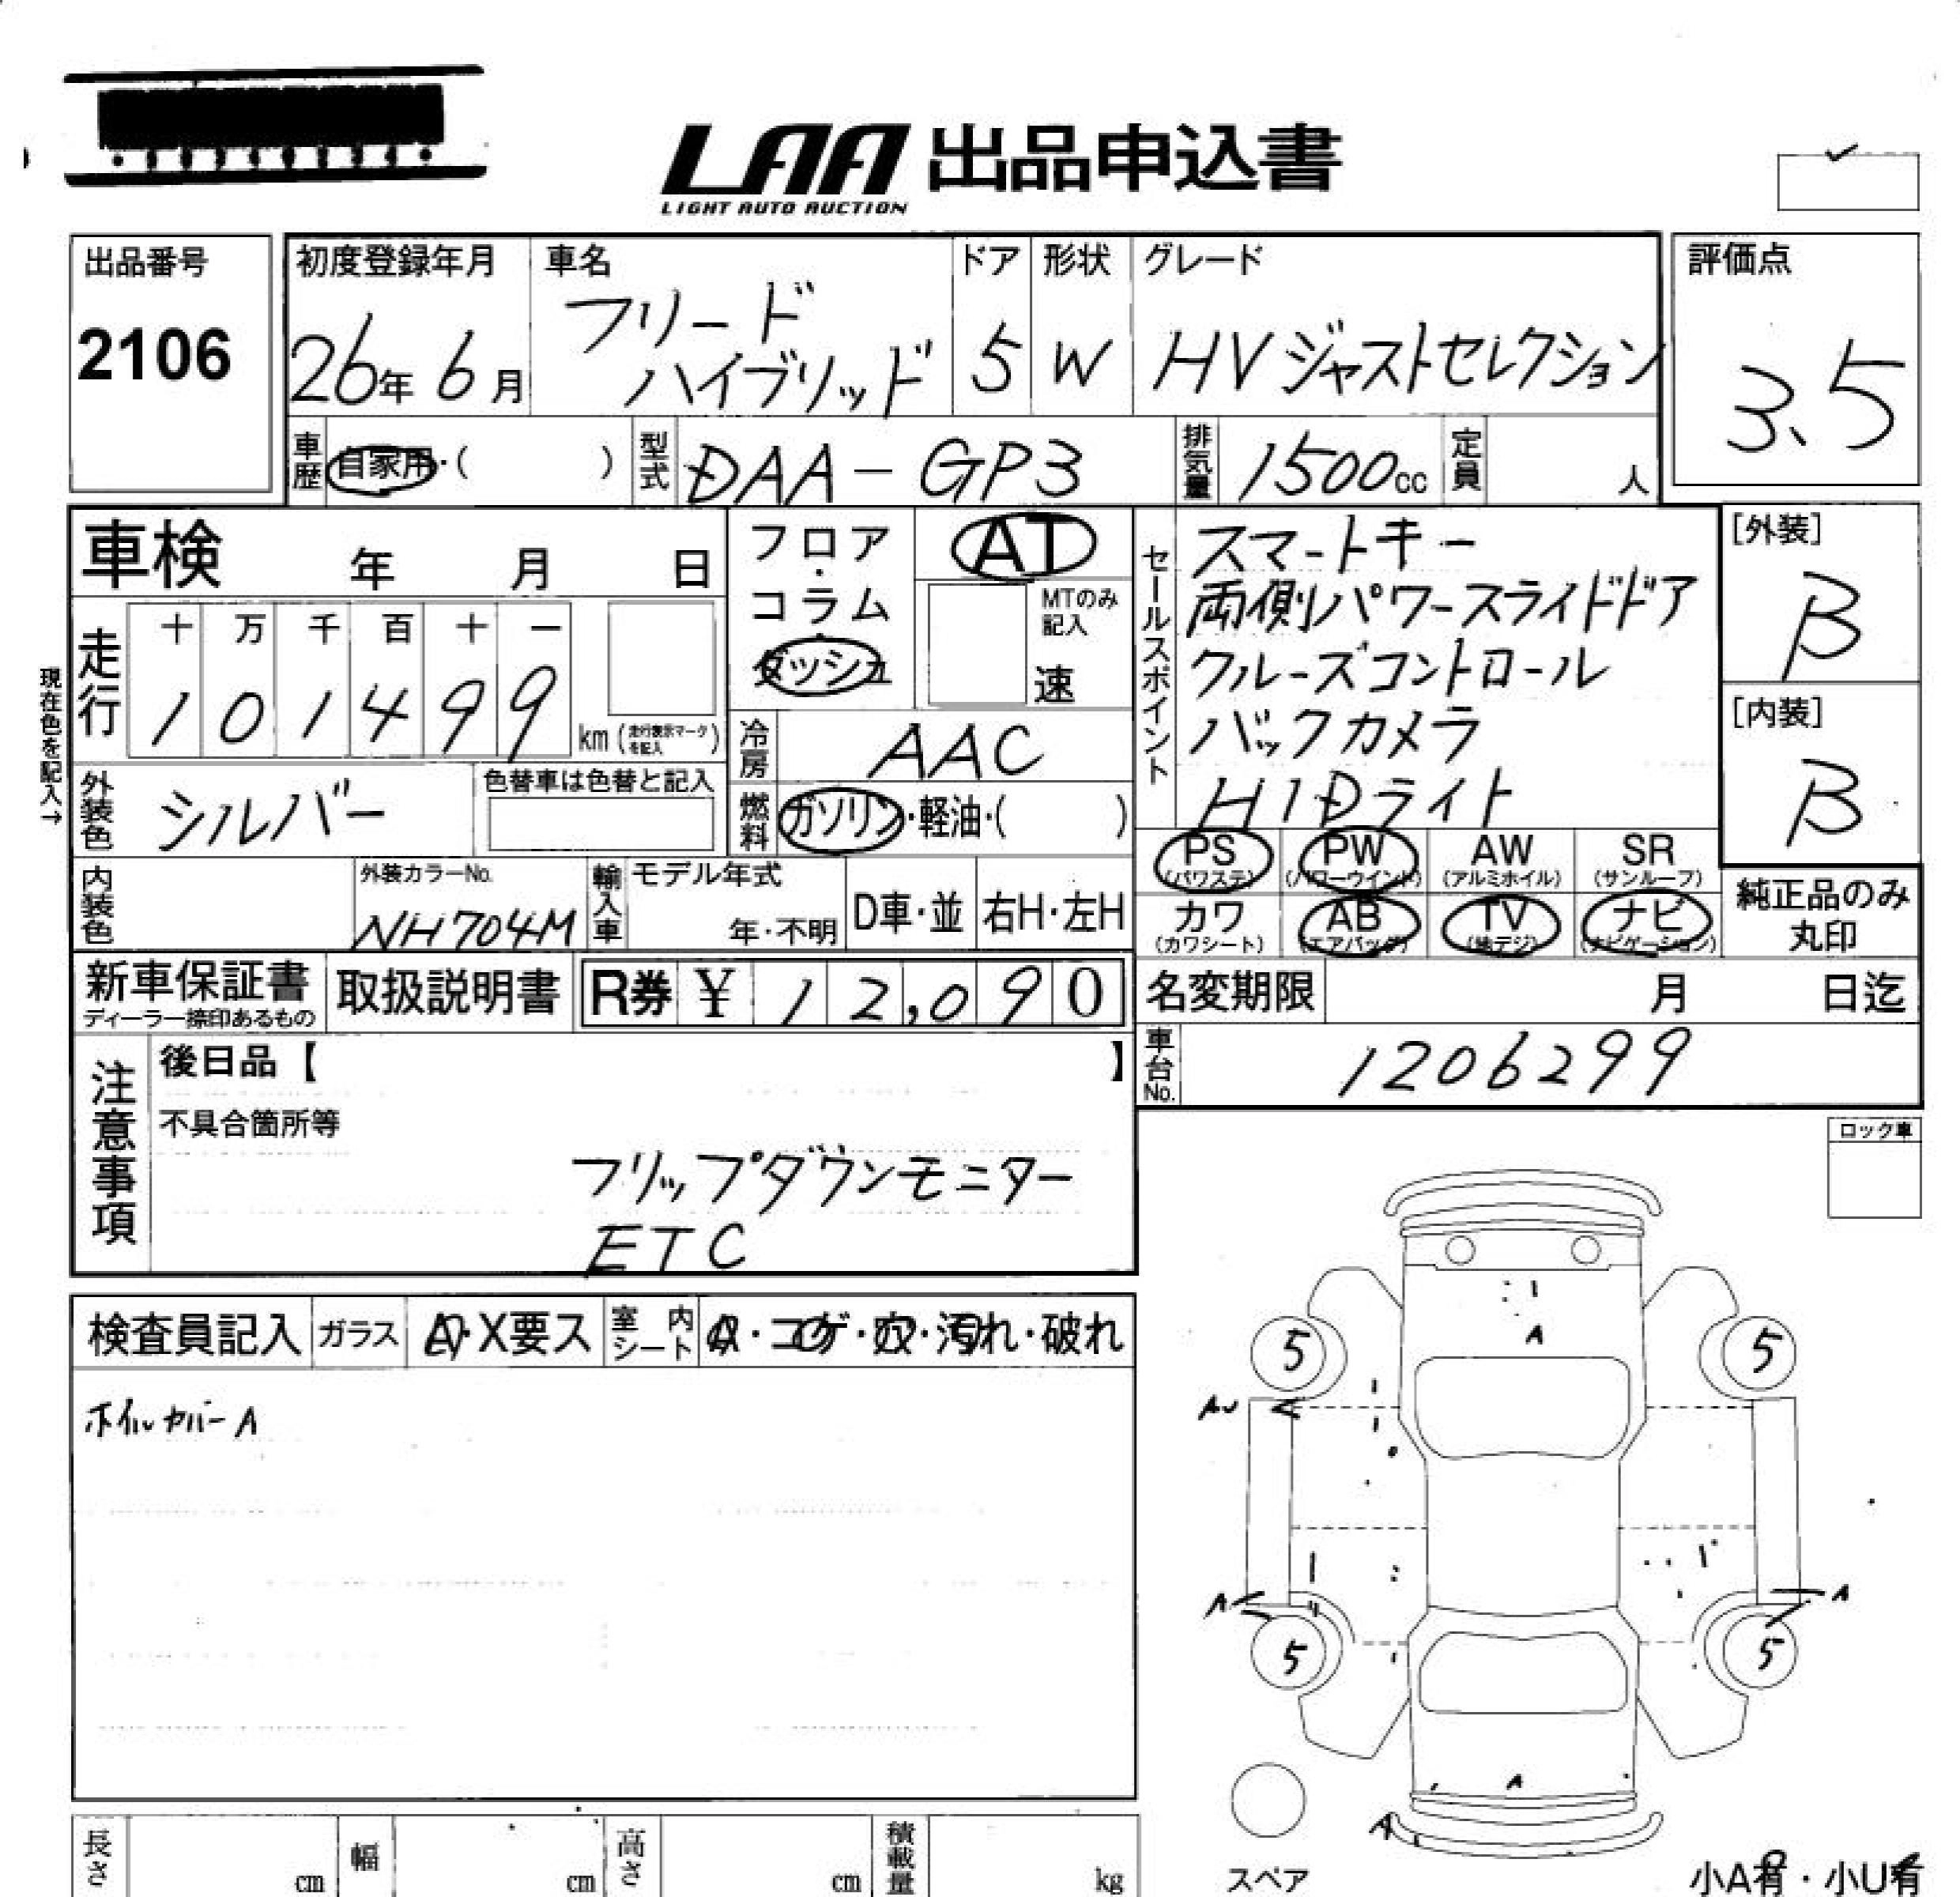 LAA 出品申込書
LIGHT AUTO AUCTION
出品番号
2106
初度登録年月
26年 6月
車名
フリード
ハイブリッド
ドア
5
形状
W
グレード
HV ジャストセレクション
評価点
3.5
車歴 自家用・( )
型式 DAA-GP3
排気量 1500cc
定員 人
車検 年 月 日
フロア・コラム・ダッシュ
AT
MTのみ記入
速
走行
十 万 千 百 十 一
1 0 1 4 9 9
km (走行表示マークを記入)
現在色を記入→
冷房 AAC
外装色 シルバー
色替車は色替と記入
燃料 ガソリン・軽油・( )
内装色
外装カラーNo.
NH704M
輸入車
モデル年式
年・不明
D車・並
右H・左H
セールスポイント
スマートキー
両側パワースライドドア
クルーズコントロール
バックカメラ
HIDライト
[外装]
B
[内装]
B
PS (パワステ)
PW (パワーウインド)
AW (アルミホイル)
SR (サンルーフ)
カワ (カワシート)
AB (エアバッグ)
TV (地デジ)
ナビ (ナビゲーション)
純正品のみ
丸印
新車保証書
ディーラー捺印あるもの
取扱説明書
R券 ¥ 12,090
名変期限 月 日迄
車台No. 1206299
注意事項
後日品【 】
不具合箇所等
フリップダウンモニター
ETC
ロック車
検査員記入
ガラス
A・X要ス
室内シート
A・コゲ・穴・汚れ・破れ
ホイルカバーA
A
5
5
AU
A
A
5
5
A
A
スペア
小A有・小U有
長さ cm
幅 cm
高さ cm
積載量 kg